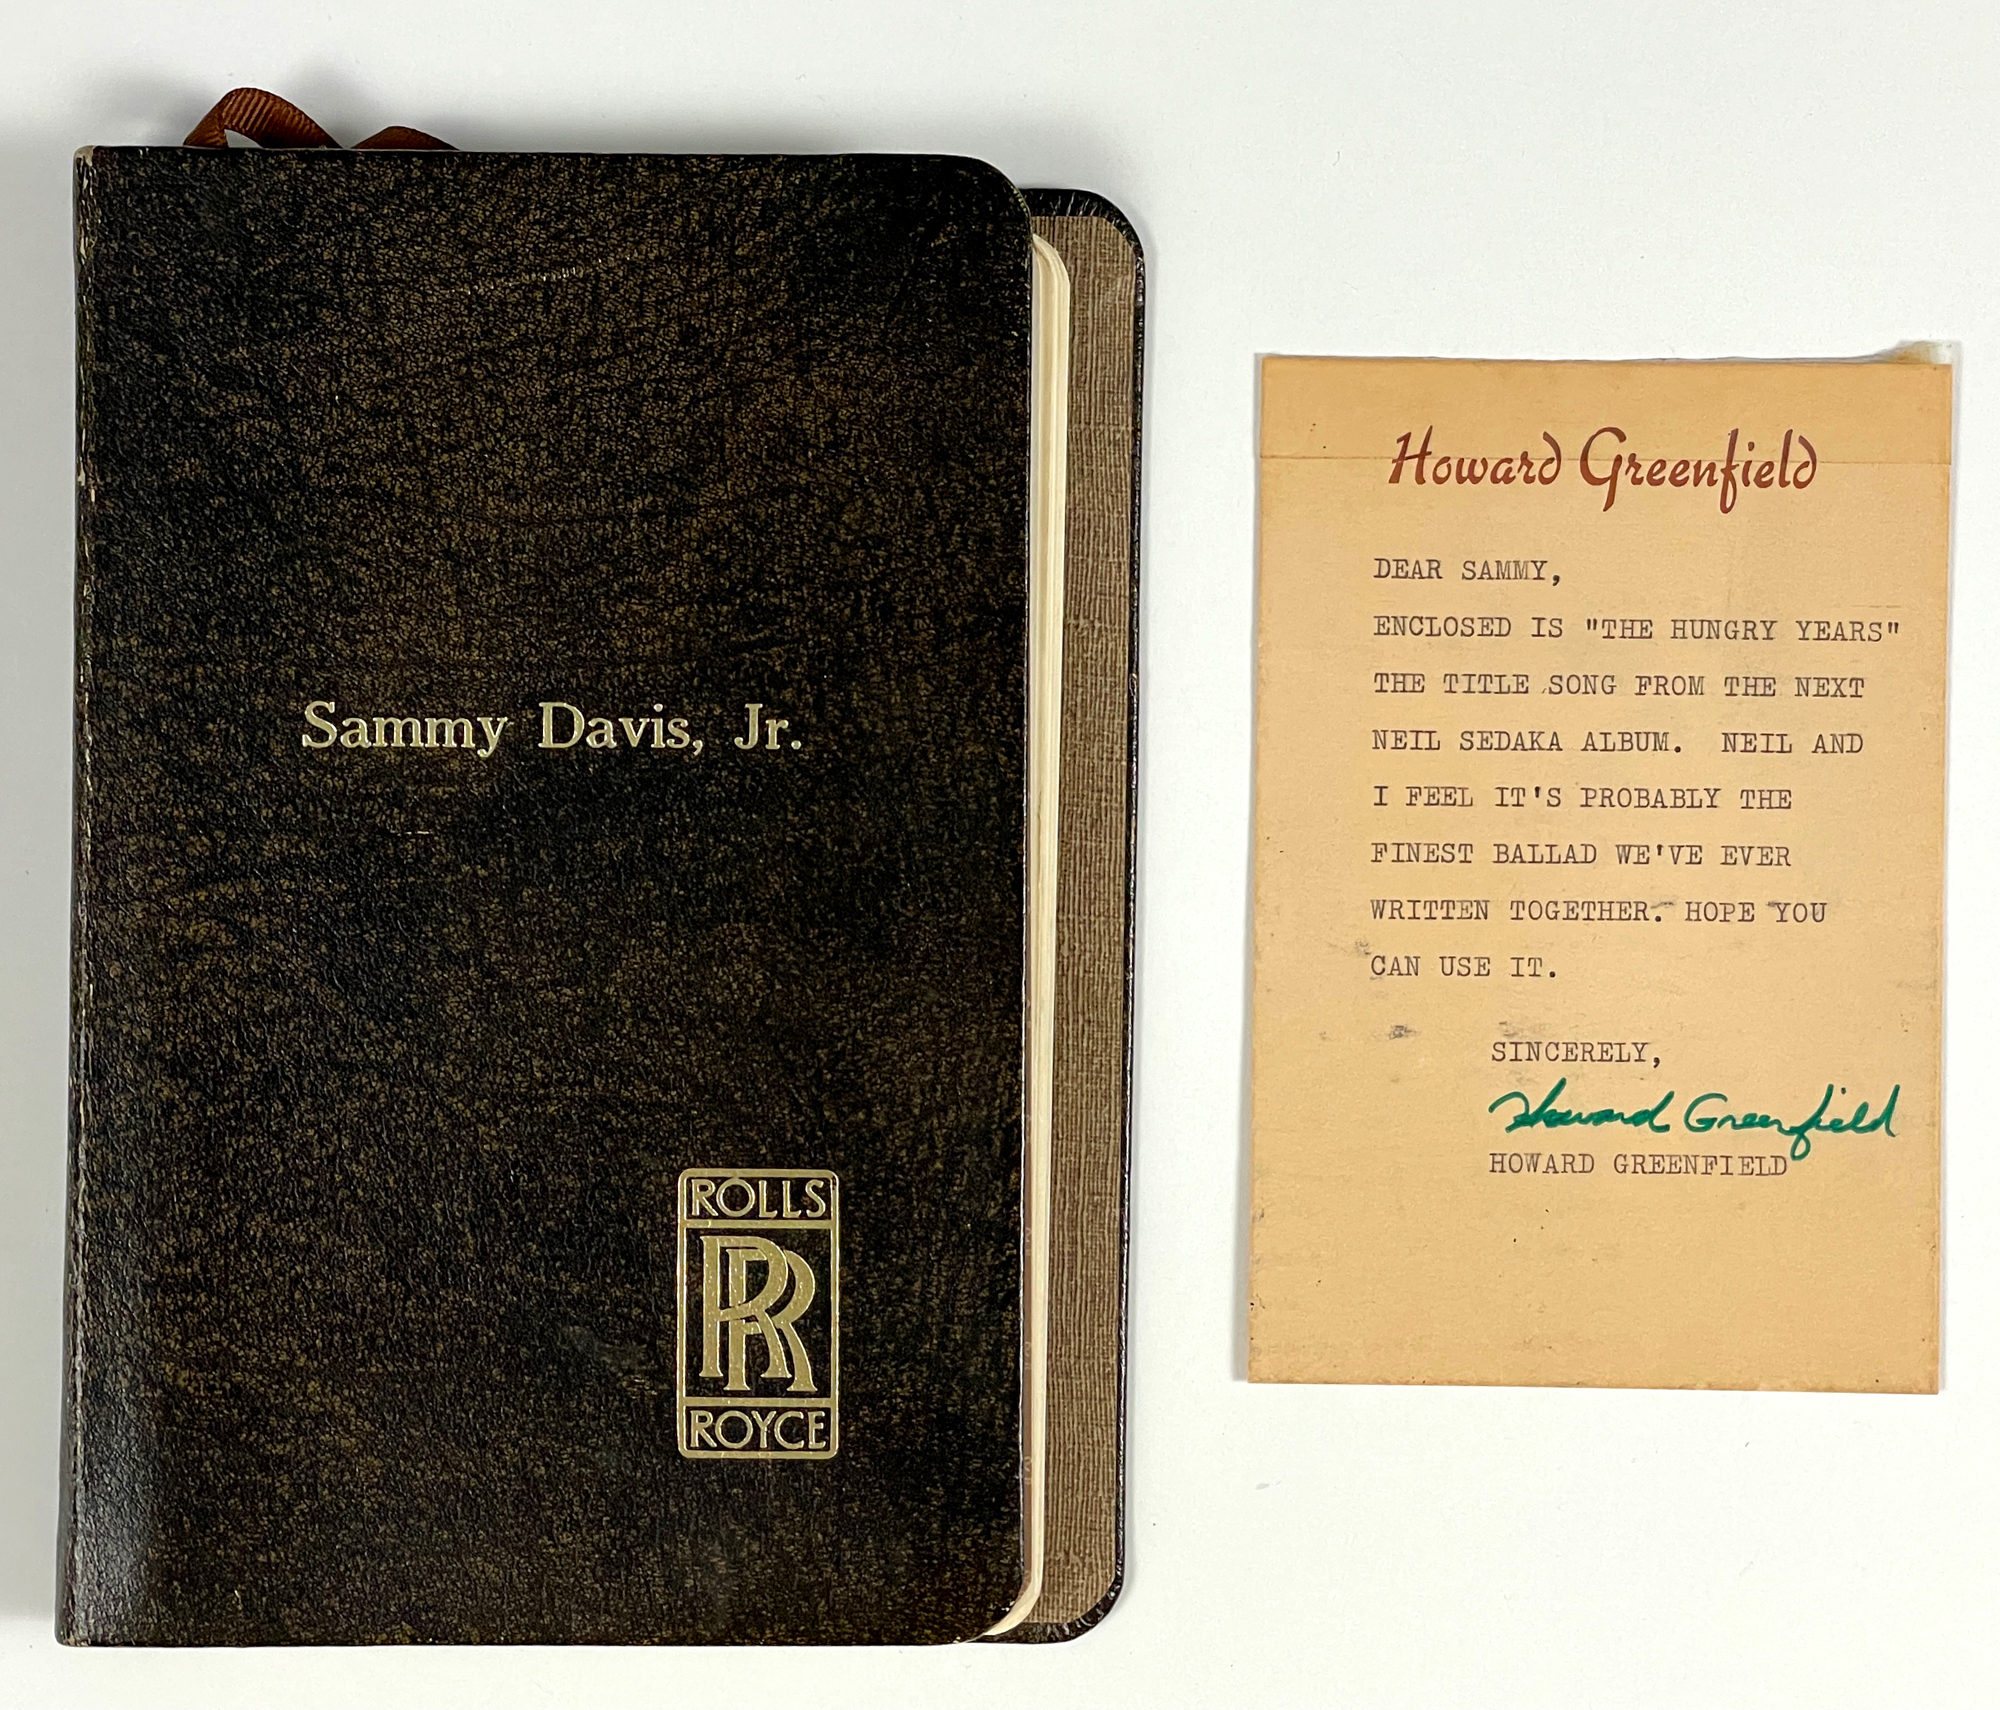 Sammy Davis, Jr.
ROLLS
RR
ROYCE
Howard Greenfield
DEAR SAMMY,
ENCLOSED IS "THE HUNGRY YEARS"
THE TITLE SONG FROM THE NEXT
NEIL SEDAKA ALBUM.  NEIL AND
I FEEL IT'S PROBABLY THE
FINEST BALLAD WE'VE EVER
WRITTEN TOGETHER. HOPE YOU
CAN USE IT.
SINCERELY,
Howard Greenfield
HOWARD GREENFIELD